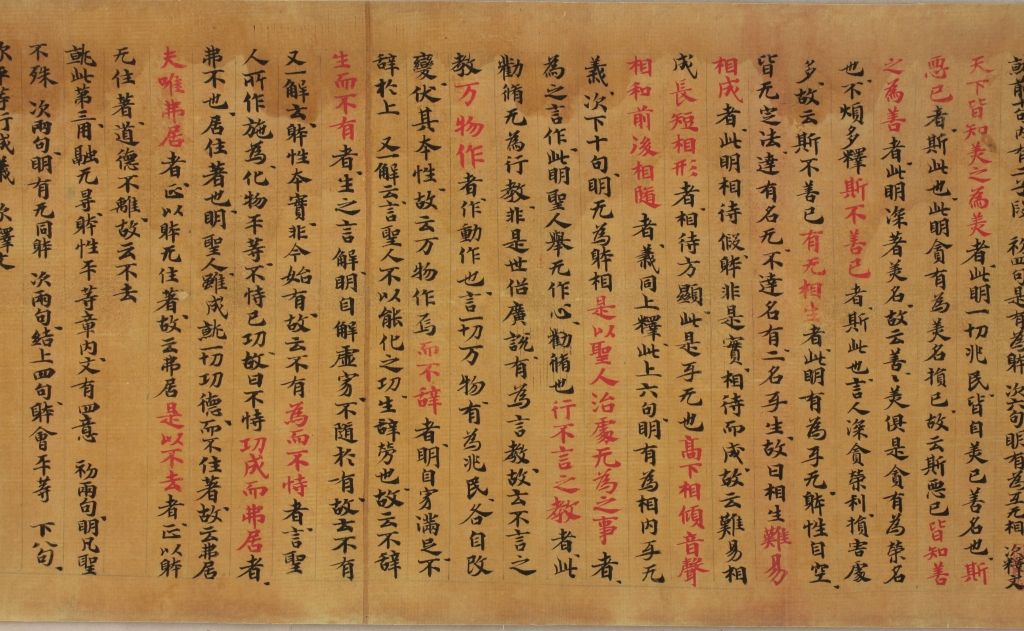 初四句是有為躰 次六句明有為互无相 次釋文
天下皆知美之為美者此明一切兆民皆自美已善名也斯
惡已者斯此也此明貪有為美名損已故云斯惡已皆知善
之為善者此明深著美名故云善〻美俱是貪有為榮名
也不煩多釋斯不善已者斯此也言人深貪榮利損害處
多故云斯不善已有无相生者此明有為乎无躰性自空
皆无定法達有名无不達名有二名乎生故曰相生難易
相成者此明相待假躰非是實相待而成故云難易相
成長短相形者相待方顯此是乎无也高下相傾音聲
相和前後相隨者義同上釋此上六句明有為相内乎无
義次下十句明无為躰相是以聖人治處无為之事者
為之言作此明聖人舉无作心勸脩也行不言之教者此
勸脩无為行教非是世俗廣說有為言教故云不言之
教万物作者作動作也言一切万物有為兆民各自改
變伏其本性故云万物作焉而不辞者明自穷滿足不
辞於上 又一解云言聖人不以能化之功生辞劳也故云不辞
生而不有者生之言解明自解虛穷不隨於有故云不有
又一解云躰性本實非今始有故云不有為而不恃者言聖
人所作施為化物平等不恃已功故曰不恃功成而弗居者
弗不也居住著也明聖人雖成就一切功德而不住著故云弗居
夫唯弗居者正以躰无住著故云弗居是以不去者正以躰
无住著道德不離故云不去
就此第三用融无尋躰性平等章内文有四意 初兩句明凡聖
不殊 次兩句明有无同躰 次兩句結上四句躰會平等 下八句
等行成義 次釋文